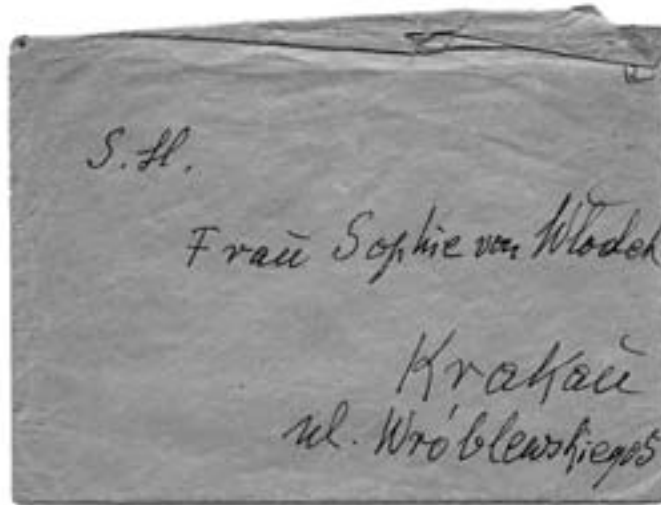 S. H.
Frau Sophie von Włodek
Krakau
ul. Wróblewskiego 5